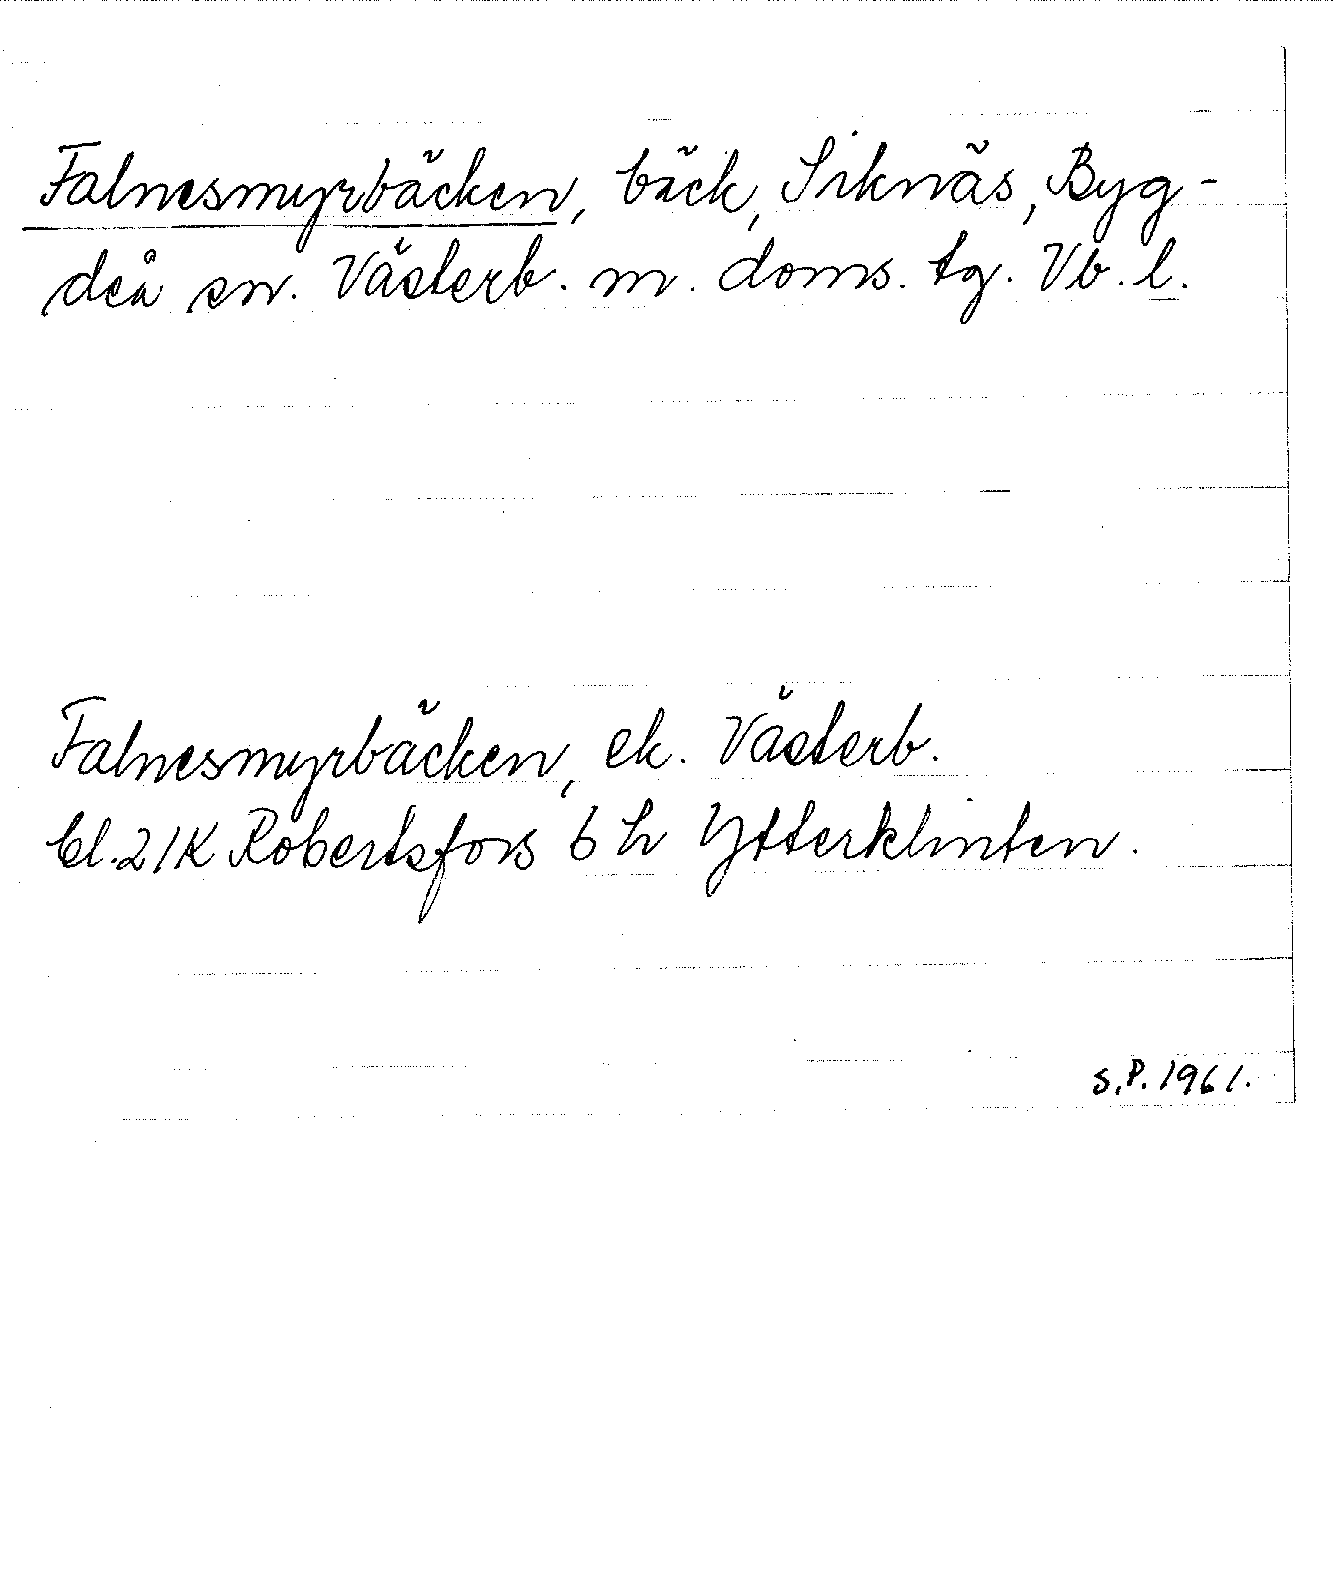 Falnesmyrbäcken, bäck, Siknäs, Byg-
deå sn. Västerb. m. doms. tg. Vb. l.
Falnesmyrbäcken, ek. Västerb.
bl. 21K Robertsfors 6 h Ytterklinten.
S.P. 1961.